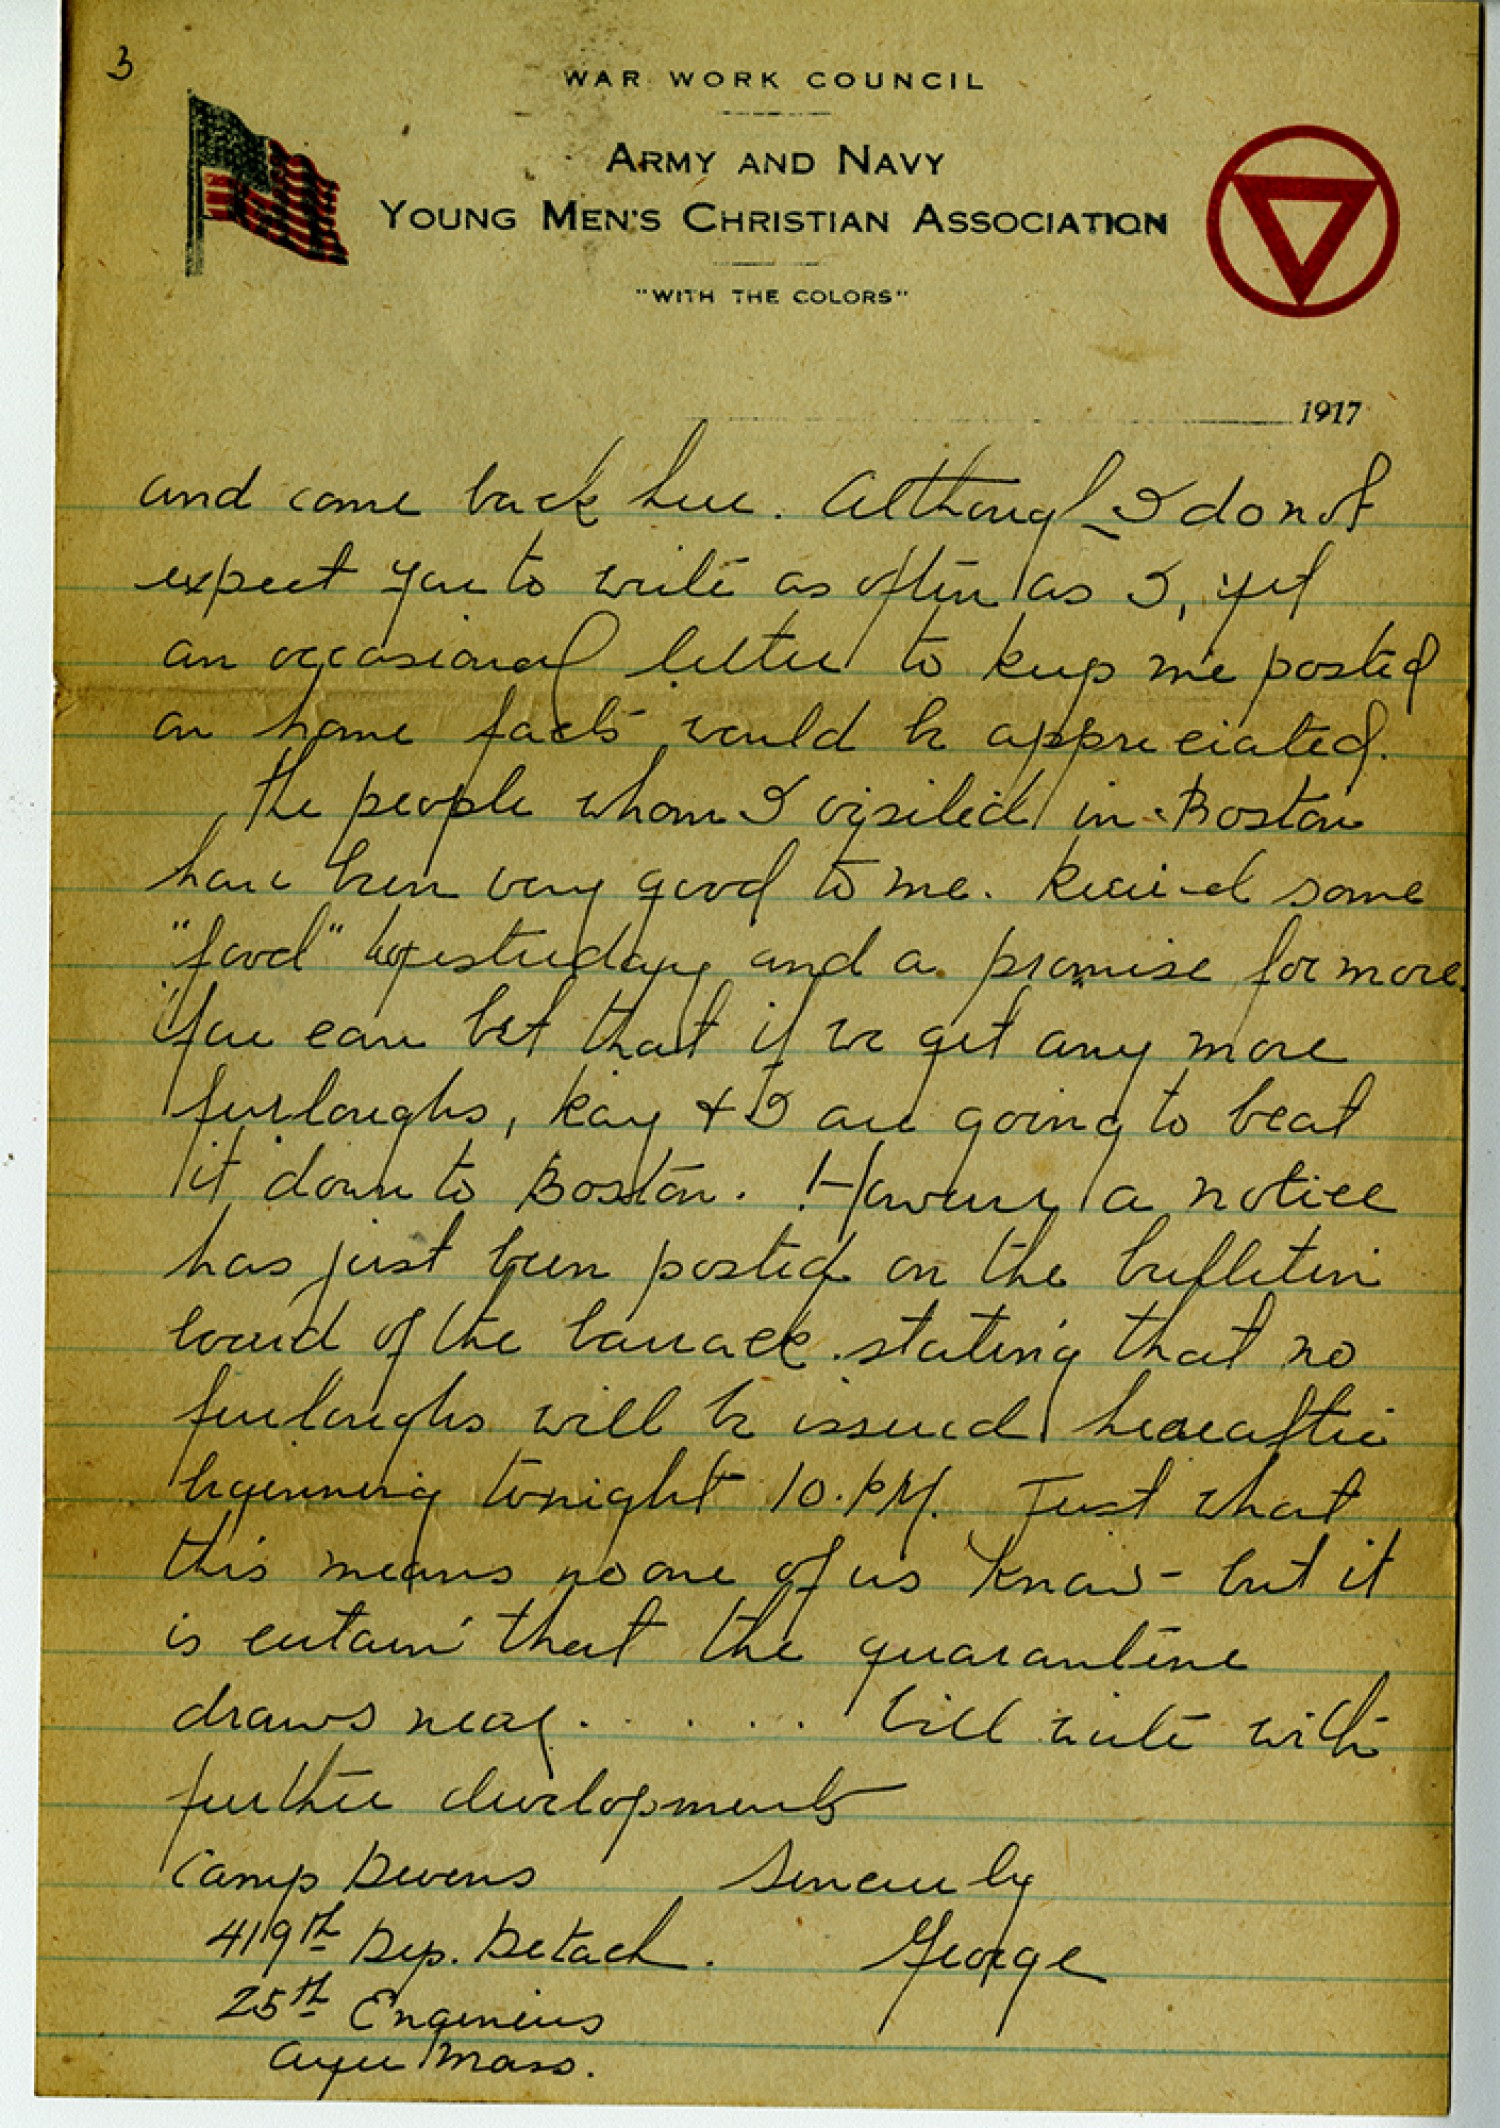 3
WAR WORK COUNCIL
ARMY AND NAVY
YOUNG MEN'S CHRISTIAN ASSOCIATION
"WITH THE COLORS"
1917
and come back here. Although I do not
expect you to write as often as I, yet
an occasional letter to keep me posted
on home facts would be appreciated.
The people whom I visited in Boston
have been very good to me. Received some
"food" yesterday and a promise for more.
You can bet that if we get any more
furloughs, Kay + I are going to beat
it down to Boston. However a notice
has just been posted on the bulletin
board of the barrack stating that no
furloughs will be issued hereafter
beginning tonight 10. PM. Just what
this means no one of us know - but it
is certain that the quarantine
draws near. . . . . . Will write with
further developments
Camp Devens Sincerely
419th Dep. Detach. George
25th Engineers
Ayer Mass.